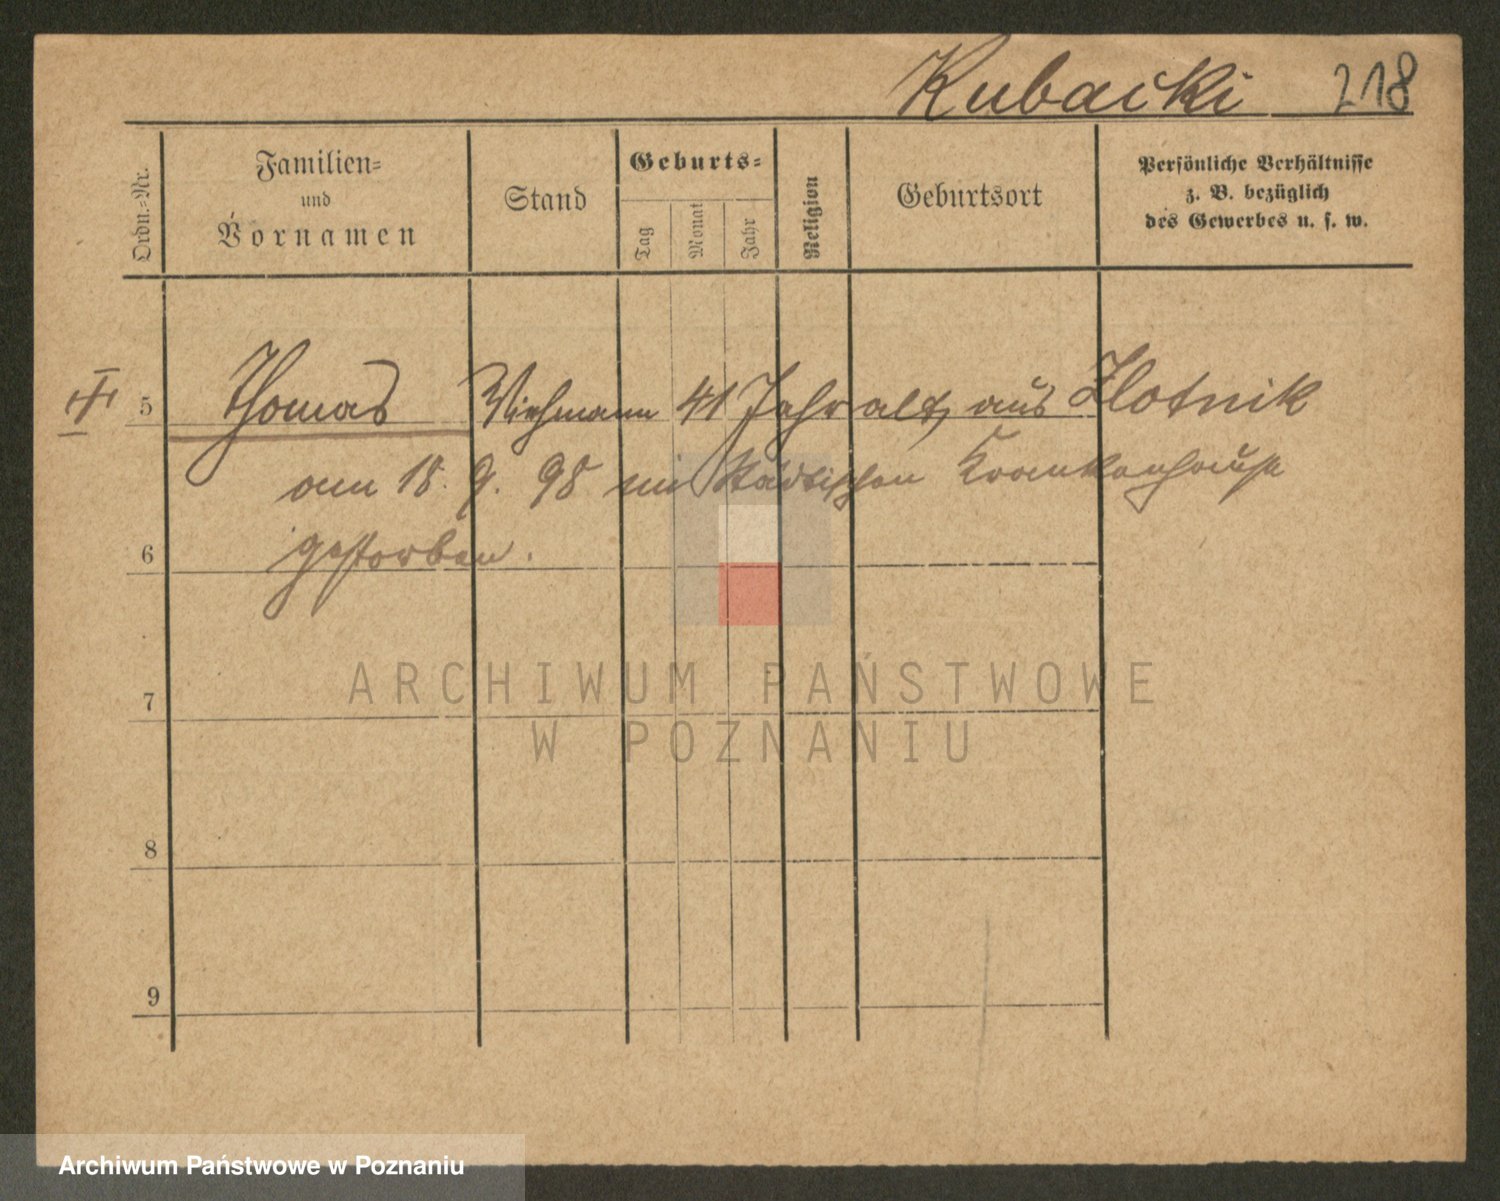 Kubacki 218
Ordn.-Nr.
Familien-
und
Vornamen
Stand
Geburts-
Tag
Monat
Jahr
Religion
Geburtsort
Persönliche Verhältnisse
z. B. bezüglich
des Gewerbes u. s. w.
5 Thomas Viehmann 41 Jahr alt, aus Zlotnik
am 18. 9. 98 im Städtischen Krankenhause
6 gestorben.
ARCHIWUM PAŃSTWOWE
W POZNANIU
7
8
9
Archiwum Państwowe w Poznaniu